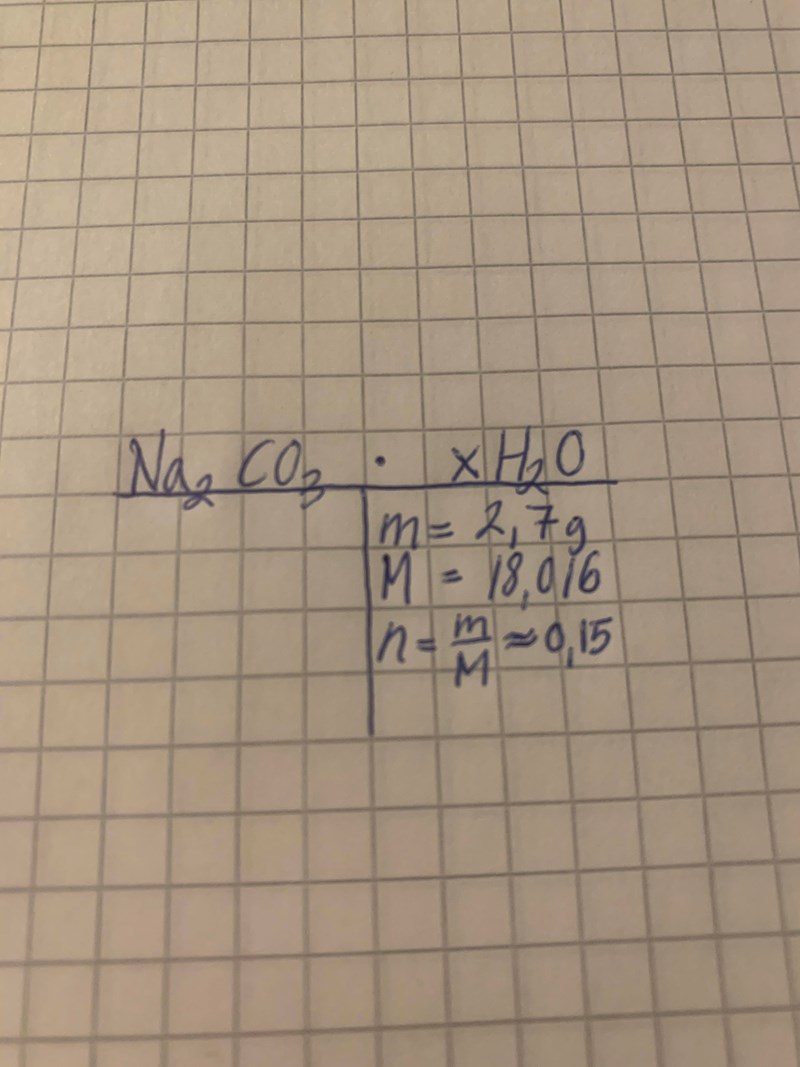 Na₂CO₃ · xH₂O
m = 2,7g
M = 18,016
n = m/M ≈ 0,15